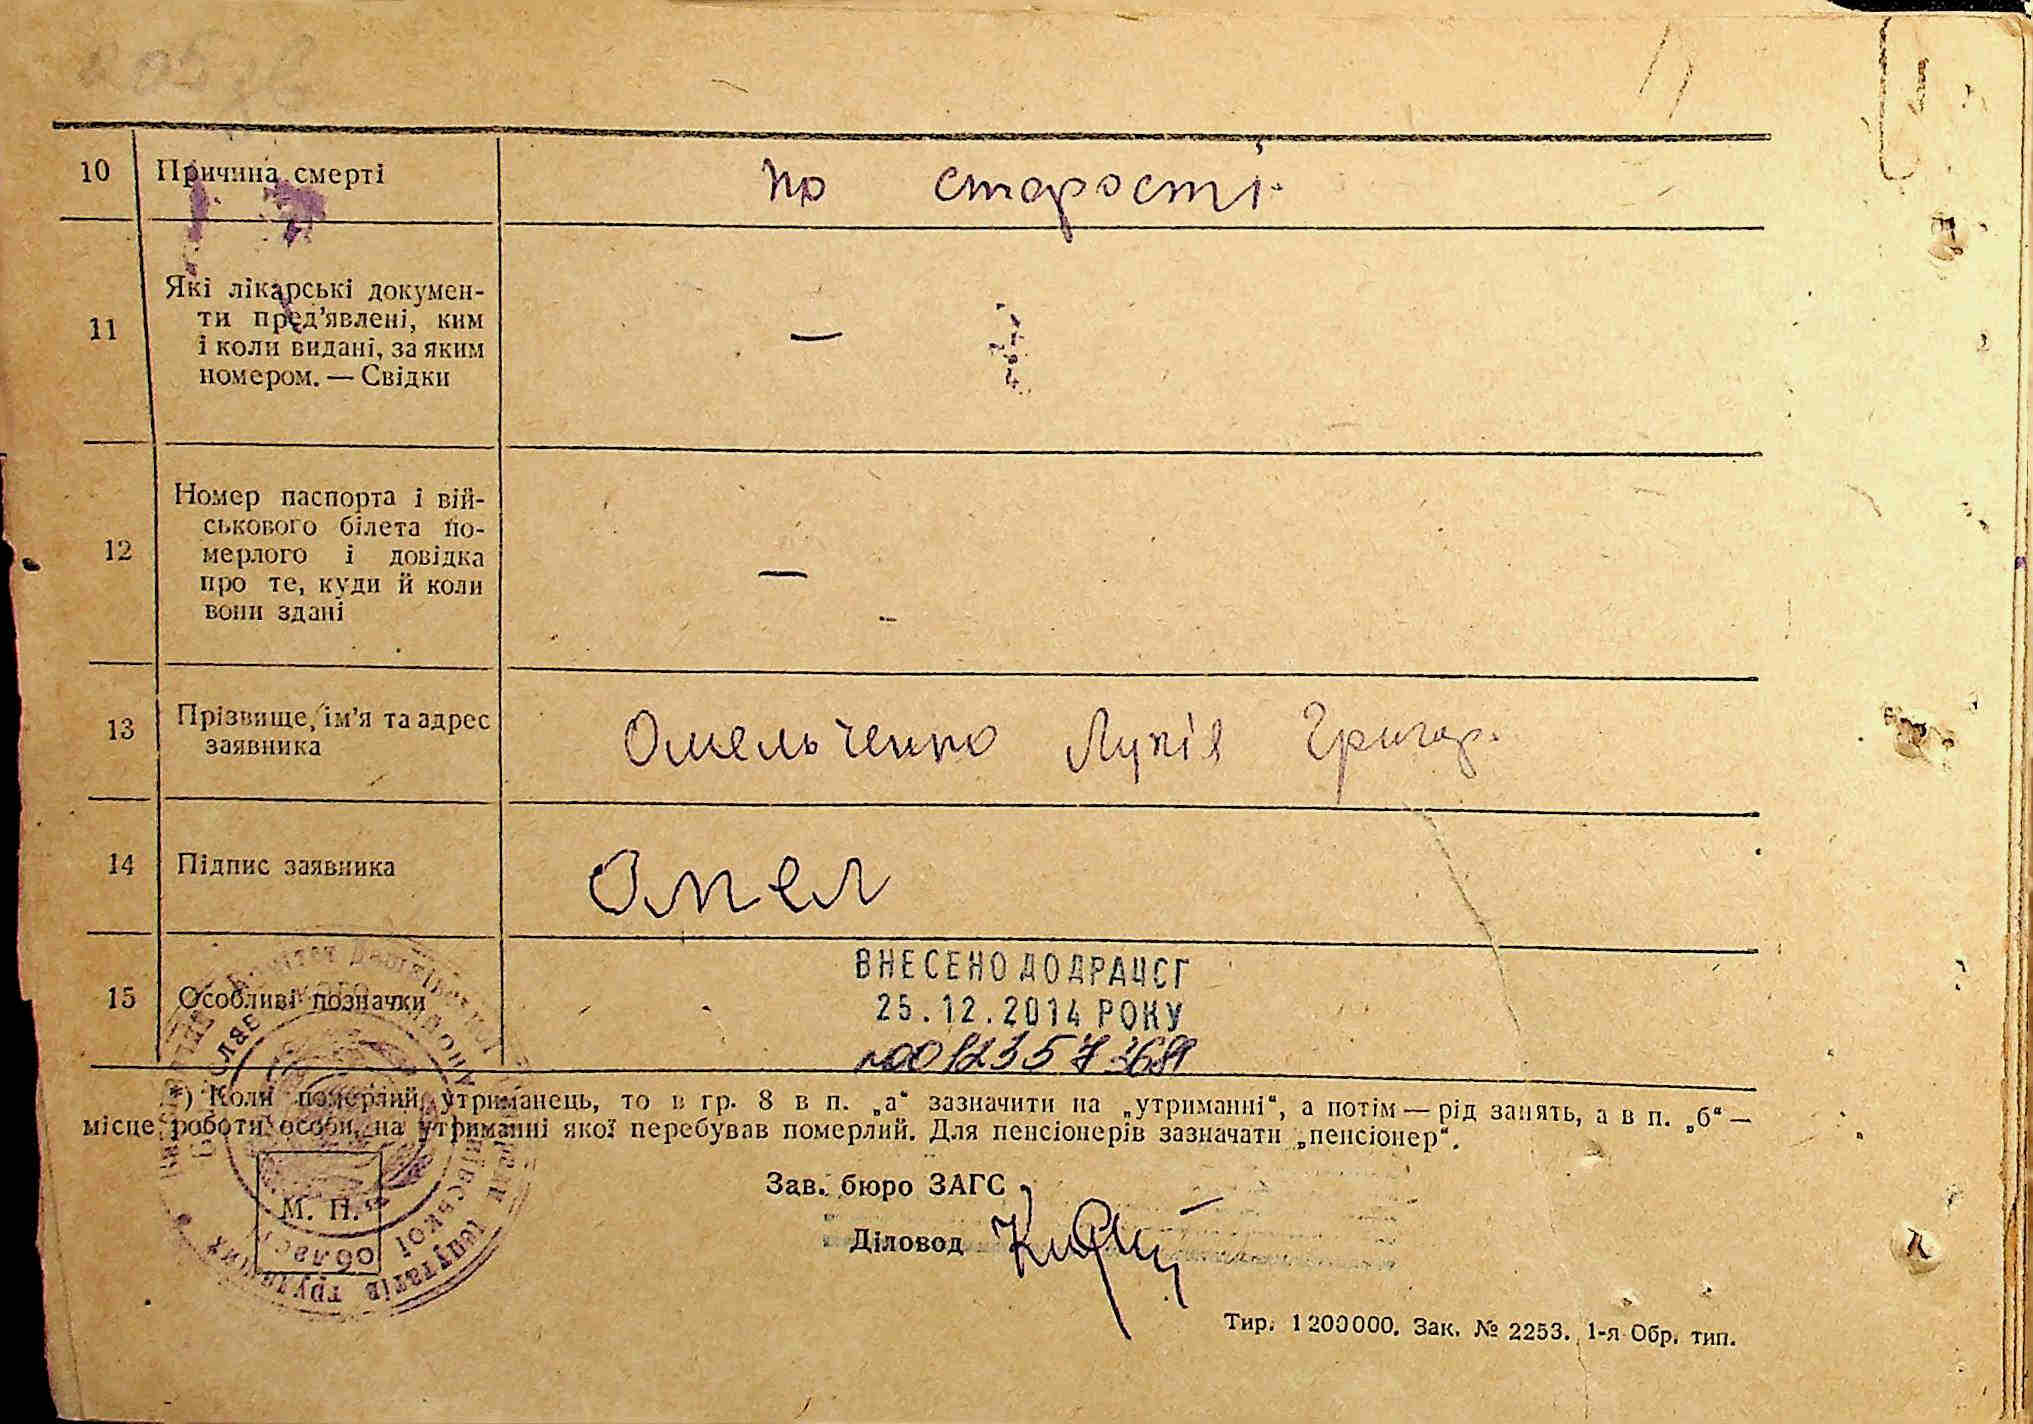 10 Причина смерті по старості.
11 Які лікарські докумен-
ти пред'явлені, ким
і коли видані, за яким
номером. — Свідки —
12 Номер паспорта і вій-
ськового білета по-
мерлого і довідка
про те, куди й коли
вони здані —
13 Прізвище, ім'я та адрес
заявника Омельченко Лукія Григор.
14 Підпис заявника Омел
15 Особливі позначки
ВНЕСЕНО ДО ДРАЦСГ
25.12.2014 РОКУ
*) Коли померлий утриманець, то в гр. 8 в п. „а“ зазначити на „утриманні“, а потім — рід занять, а в п. „б“ —
місце роботи особи, на утриманні якої перебував померлий. Для пенсіонерів зазначати „пенсіонер“.
Зав. бюро ЗАГС
Діловод
М. П.
депутатів трудящих
області
Тир. 1200000. Зак. № 2253. 1-я Обр. тип.